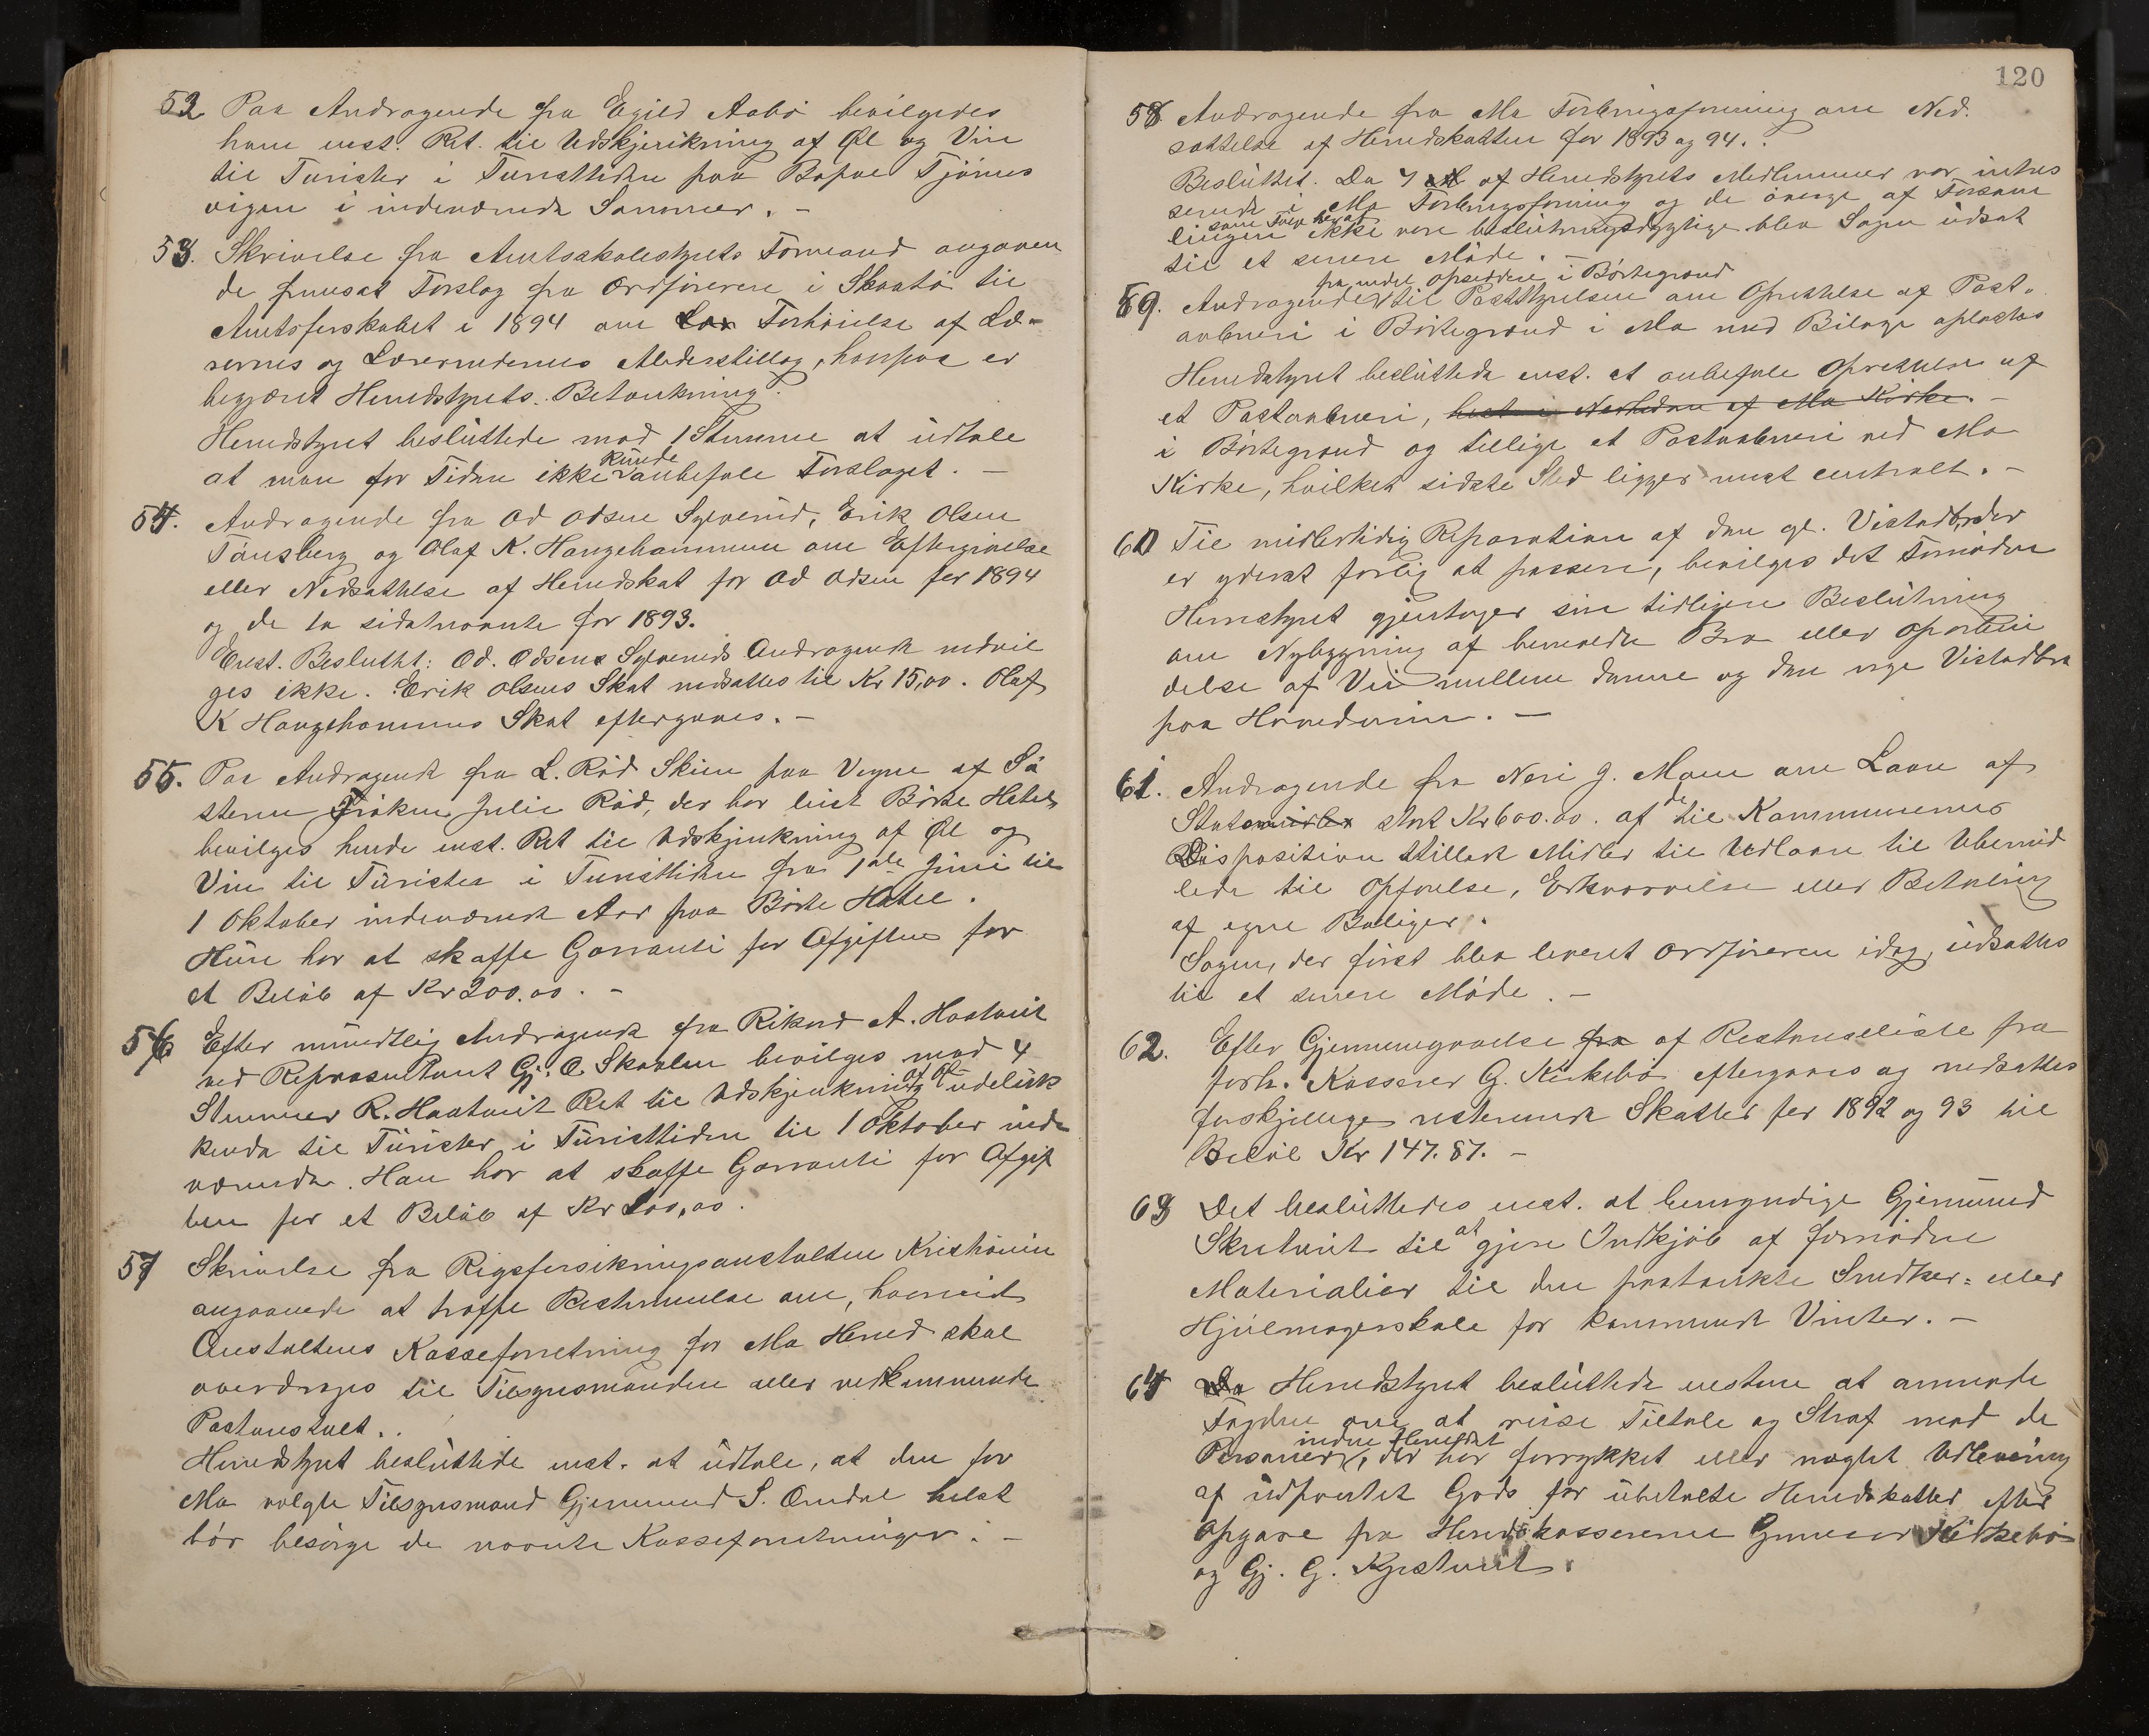 52 Paa Andragende fra Egild Aabø bevilgedes
ham enst. Ret. til Udskjænkning af Øl og Vin
til Turister i Turisttiden paa Tjønns
vigen i indeværende Sommer. –
53. Skrivelse fra Amtsskolestyrets Formand angaaen
de fremsat Forslag fra Ordføreren i Skaatø til
Amtsformskabet i 1894 om Forhøielse af Læ-
rernes og Lærerindernes Alderstillæg, hvorpaa er
begjæret Herredstyrets Betænkning.
Herredstyret besluttede mod 1 Stemme at udtale
at man for Tiden ikke kunde anbefale Forslaget. –
54. Andragende fra Od Odsen Sylverud, Erik Olsen
Tønsberg og Olaf K. Haugehammen om Eftergivelse
eller Nedsættelse af Herredskat for Od Odsen for 1894
og de to sidstnævnte for 1893.
Enst. Besluttet: Od. Odsens Sylveruds Andragende indvil
ges ikke. Erik Olsens Skat nedsattes til Kr 15,00. Olaf
K Haugehammens Skat eftergaves. –
55. Paa Andragende fra L. Rød Skien paa Vegne af Sø
steren Frøken Julie Rød, der har leiet Børte Hotel
bevilges hende enst. Ret til Udskjænkning af Øl og
Vin til Turister i Turisttiden fra 1ste Juni til
1 Oktober indeværende Aar paa Børte Hotel.
Hun har at skaffe Garranti for Afgiften for
et Beløb af Kr 200.00. –
56 Efter mundtlig Andragende fra Rikard A. Haatveit
ved Repræsentant Gj. O. Skaalen bevilges mod 4
Stemmer R. Haatveit Ret til Udskjænkning af Øl udeluk
kende til Turister i Turisttiden til 1 Oktober inde
værende. Han har at skaffe Garranti for Afgif
ten for et Beløb af Kr 200,00.
57 Skrivelse fra Rigsforsikringsanstalten Kristiania
angaaende at træffe Bestemmelse om, hvorvidt
Anstaltens Kasseforretning for Mo Herred skal
overdrages til Tilsynsmanden eller vedkommende
Postanstalt.
Herredstyret besluttede enst. at udtale, at den for
Mo valgte Tilsynsmand Gjermund S. Omdal helst
bør besørge de nævnte Kasseforretninger. –
120
58 Andragende fra Mo Forbrugsforening om Ned-
sættelse af Herredskatten for 1893 og 94.
Besluttet. Da 7 af Herredstyrets Medlemmer var intres
serede i Mo Forbrugsforening og de øvrige af Forsam
lingen ikke var beslutningsdygtige blev Sagen udsat
til et senere Møde. –
fra endel Opsiddere i Børtegrend
59. Andragende til Poststyrelsen om Oprettelse af Post-
aabneri i Børtegrend i Mo med Bilage oplæstes
Herredstyret besluttede enst. at anbefale Oprettelse af
et Postaabneri, helst i Nærheden af Mo Kirke. –
i Børtegrend og tillige et Postaabneri ved Mo
Kirke, hvilket sidste Sted ligger mest centralt. –
60 Til midlertidig Reparation af den gl. Vistadbro der
er yderst farlig at passere, bevilges det Fornødne
Herredstyret gjentager sin tidligere Beslutning
om Nybygning af bemeldte Bro eller Oparbei
delse af Vei mellem denne og den nye Vistadbro
paa Hovedveien. –
61. Andragende fra Neri G. Moen om Laan af
Statsmidler stort Kr 600.00. af de til Kommunernes
Disposition stillede Midler til Udlaan til Ubemid
lede til Opførelse, Erhvervelse eller Betaling
af egne Boliger.
Sagen, der først blev leveret Ordføreren idag, udsattes
til et senere Møde. –
62. Efter Gjennemgaaelse fra af Restanceliste fra
forh. Kasserer G. Kirkebø eftergaves og nedsattes
forskjellige resterende Skatter for 1892 og 93 til
Beløb Kr 147.87. –
63 Det besluttedes enst. at bemyndige Gjermund
Skretveit til at gjøre Indkjøb af fornødne
Materialier til den paatænkte Snedker- eller
Hjulmagerskole for kommende Vinter. –
64 Herredstyret besluttede enstem at anmode
Fogden om at reise Tiltale og Straf mod de
Personer inden Herredet, der har forrykket eller nægtet Udlevering
af udpantet Gods for ubetalte Herredskatter efter
Opgave fra Herredskassererne Gunnar Kirkebø
og Gj. G. Kjostveit.